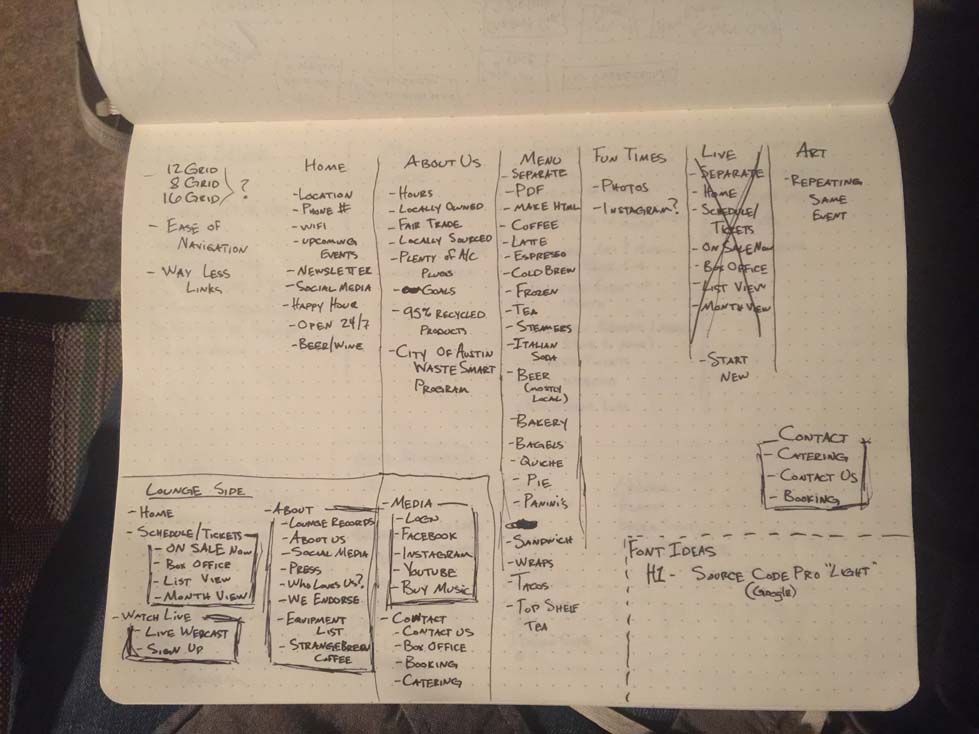 - 12 Grid
8 Grid
16 Grid
?
- Ease of
Navigation
- Way Less
Links
Home
- Location
- Phone #
- Wifi
- Upcoming
Events
- Newsletter
- Social Media
- Happy Hour
- Open 24/7
- Beer/Wine
About Us
- Hours
- Locally Owned
- Fair Trade
- Locally Sourced
- Plenty of A/C
Plugs
- Goals
- 95% Recycled
Products
- City Of Austin
Waste Smart
Program
Menu
- Separate
- PDF
- Make HTML
- Coffee
- Latte
- Espresso
- Cold Brew
- Frozen
- Tea
- Steamers
- Italian
Soda
- Beer
(mostly
local)
- Bakery
- Bagels
- Quiche
- Pie
- Panini's
- Sandwich
- Wraps
- Tacos
- Top Shelf
Tea
Fun Times
- Photos
- Instagram?
Live
- Separate
- Home
- Schedule/
Tickets
- On Sale Now
- Box Office
- List View
- Month View
- Start
New
Art
- Repeating
Same
Event
Contact
- Catering
- Contact Us
- Booking
Lounge Side
- Home
- Schedule/Tickets
- On Sale Now
- Box Office
- List View
- Month View
- Watch Live
- Live Webcast
- Sign Up
- About
- Lounge Records
- About Us
- Social Media
- Press
- Who Loves Us?
- We Endorse
- Equipment
List
- StrangeBrew
Coffee
- Media
- Login
- Facebook
- Instagram
- YouTube
- Buy Music
- Contact
- Contact Us
- Box Office
- Booking
- Catering
Font Ideas
H1 - Source Code Pro "Light"
(Google)